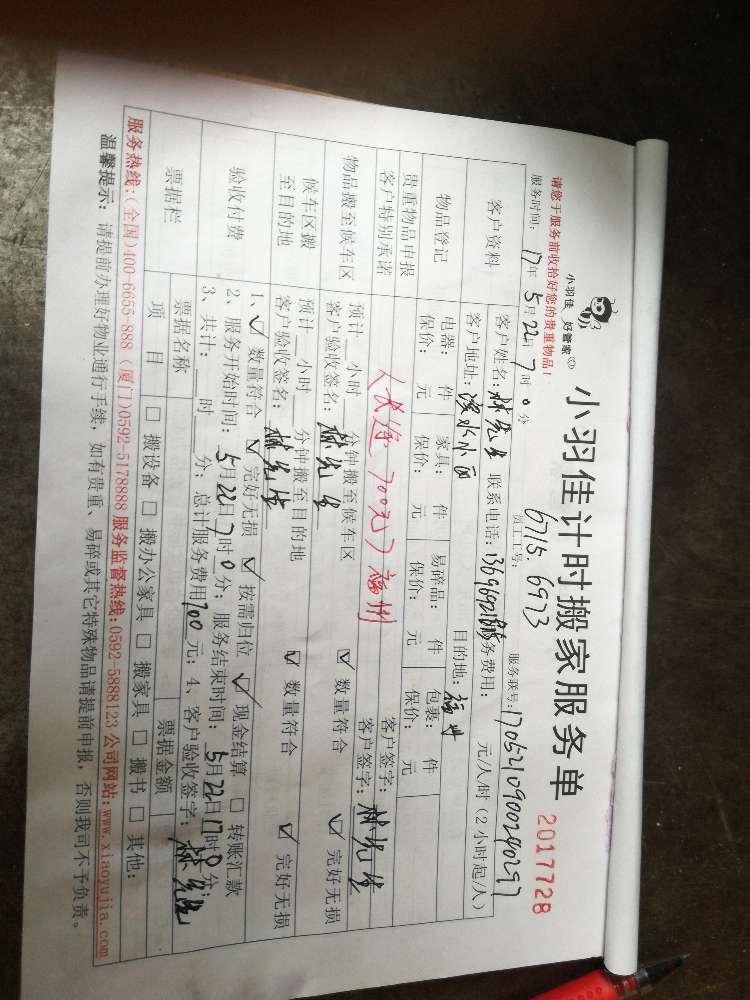 小羽佳 好管家
小羽佳计时搬家服务单 2017728
请您于服务前收拾好您的贵重物品！
员工工号： 6715 6973
服务时间： 17年 5月22日 7时 0分
服务联号：
客户资料 客户姓名：林先生 联系电话： 服务费用： 元/人/时（2小时起/人）
客户地址： 小区 目的地：福州
物品登记 电器： 件 家具： 件 易碎品： 件 包裹： 件
贵重物品申报 保价： 元 保价： 元 保价： 元 保价： 元
客户特别承诺 700元 福州 客户签字：
物品搬至候车区 预计 小时 分钟搬至候车区 ☑ 数量符合 ☑ 完好无损
客户验收签名：林先生 客户签字：林先生
候车区搬至目的地 预计 小时 分钟搬至目的地 ☑ 数量符合 ☑ 完好无损
客户验收签名：林先生
验收付费 1、☑ 数量符合 ☑ 完好无损 ☑ 按需归位 ☑ 现金结算 □ 转账汇款
2、服务开始时间：5月22日7时0分；服务结束时间：5月22日17时0分；
3、共计： 时 分；总计服务费用700元；4、客户验收签字：林先生
票据栏 票据名称 票据金额
项目 □ 搬设备 □ 搬办公家具 □ 搬家具 □ 搬书 □ 其他：
服务热线：(全国)400-6655-888 (厦门)0592-5178888 服务监督热线：0592-5888123 公司网站：www.xiaoyujia.com
温馨提示：请提前办理好物业通行手续，如有贵重、易碎或其它特殊物品请提前申报，否则我司不予负责。